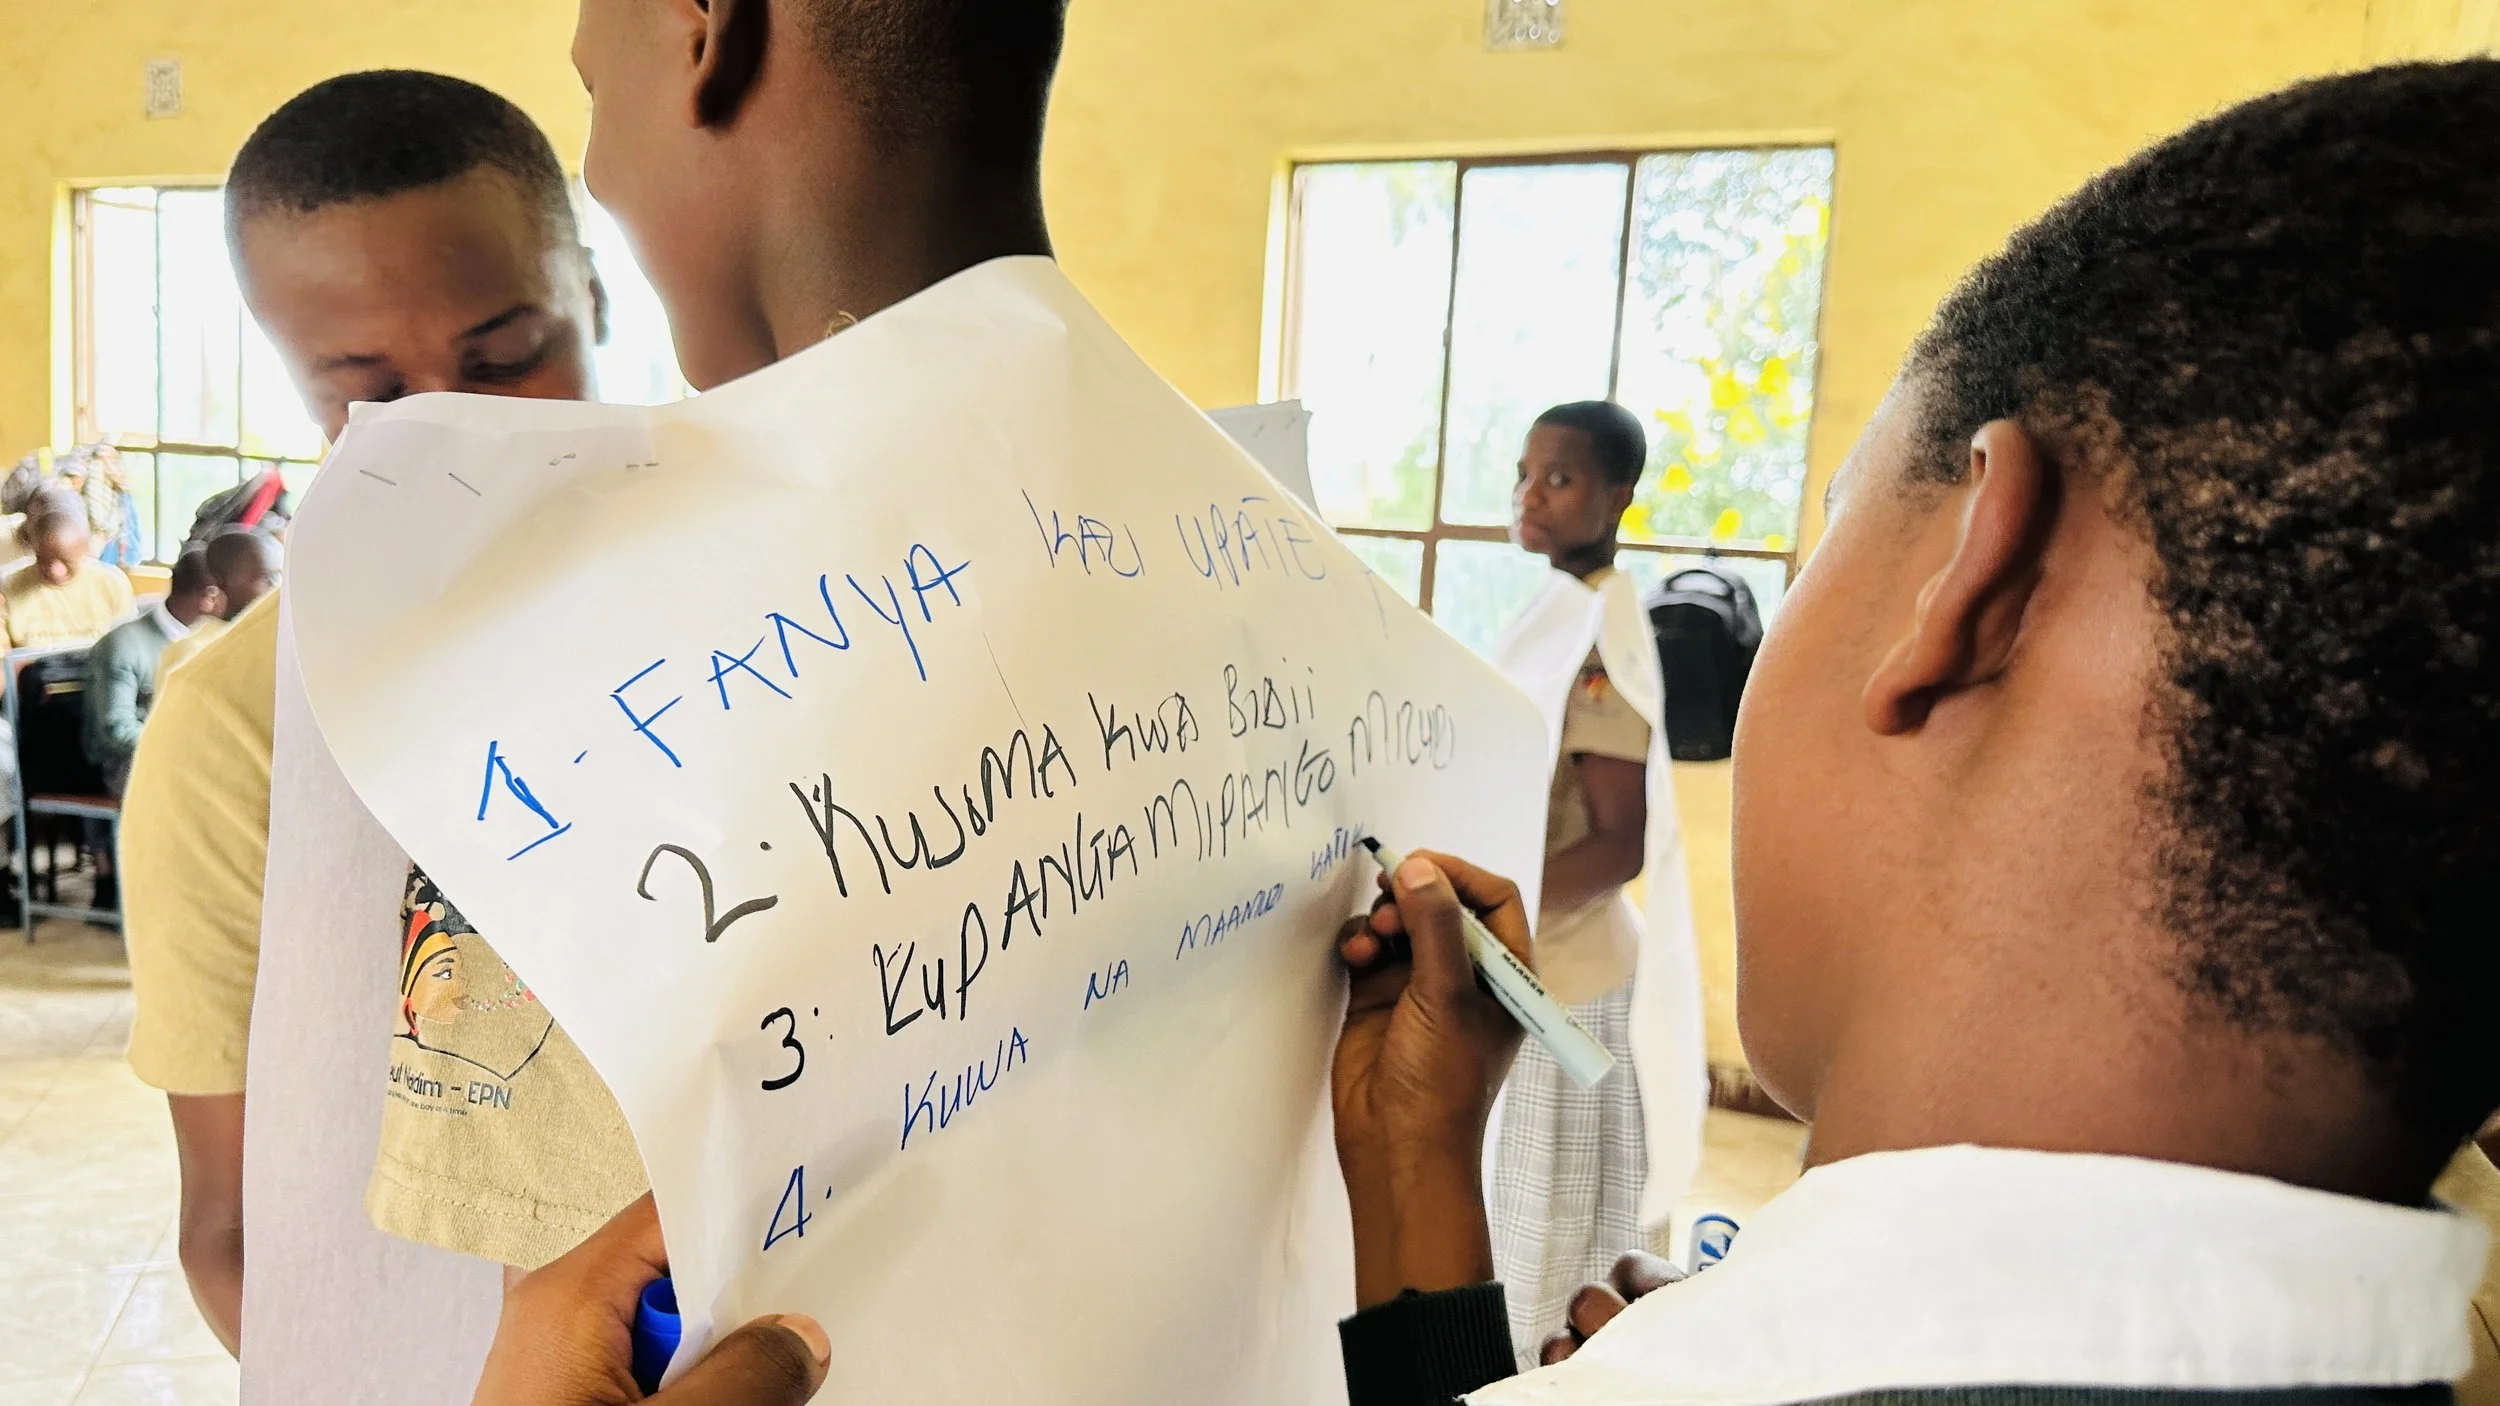 1 - FANYA KAZI UPATE
2. KUSOMA KWA BIDII
3: KUPANGA MIPANGO MIZURI
4. KUWA NA MAANDIZI KATIK
Nadim - EPN
MARKER